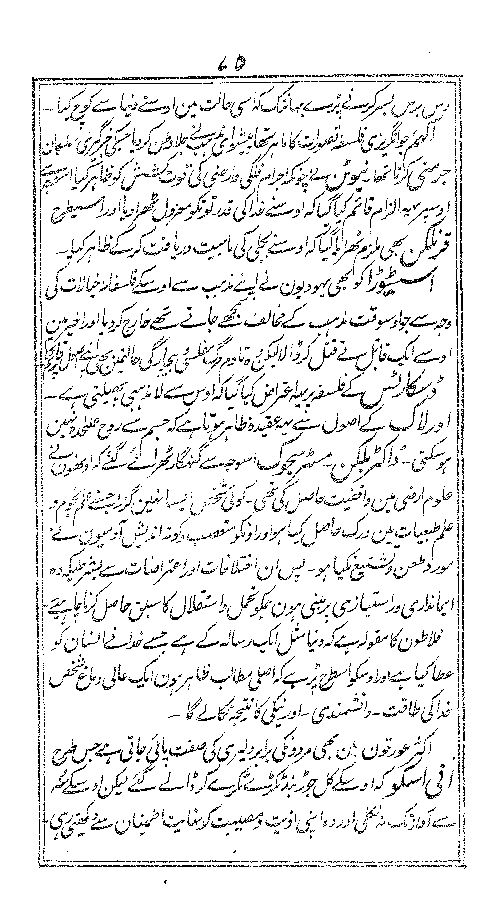 ۶۵
دس برس بسر کرنے پڑے یہانتک کہ اسی حالت مین اوسنے دنیا سے کوچ کیا۔
جو انگریزی فلسفہ تصورات کا ماہر تھا پیشوای مذہب نے جلاوطن کر دیا
جرمنی کرتا تھا۔ نیوٹن نے چونکہ اجرام فلکی قوت کشش کو ظاہر کیا
اوسپر یہ الزام قائم کیا گیا کہ اوسنے خدا کی قدرتونکو معزول ٹھرا دیا اور اسیطرح
فرنکلن بھی ملزم ٹھرایا گیا کہ اوسنے بجلی کی ماہیت دریافت کرکے ظاہر کیا۔
اسپنوزا کو بھی یہودیون نے اپنے مذہب سے اوسکے فلسفانہ خیالات کی
وجہ سے جو اوسوقت مذہب کے خالف سمجھے جاتے تھے خارج کر دیا اور اخیر مین
اوسے ایک قاتل نے قتل کر ڈالا لیکن وہ تا دم مرگ
ڈسکارٹس کے فلسفہ پر یہ اعتراض کیا گیا کہ اوس سے لا مذہبی پھیلتی ہے۔
اور لاک کے اصول سے یہ عقیدہ ظاہر ہوتا ہے کہ جسم سے روح علیٰحدہ نہین
ہو سکتی۔ ڈاکٹر بکلن۔ مسٹر سجوک اسوجہ سے گنہگار ٹھرائے گئے کہ اونھون نے
علوم ارضی مین واقفیت حاصل کی تھی۔ کوئی شخص ایسا نہین گزرا جسنے علم نجوم و
علم طبعیات مین درک حاصل کیا ہو اور اونکو متعصب و کوتہ اندیش آدمیون نے
مورد طعن و تشنیع نکیا ہو۔ پس ان اختلافات اور اعتراضات سے
ایمانداری و راستبازی پر مبنی ہون ہمکو تحمل و استقلال کا سبق حاصل کرنا چاہیے
فلاطون کا مقولہ ہے کہ دنیا مثل ایک رسالہ کے ہے جسے خدا نے انسان کو
عطا کیا ہے اور اوسکو اسطرح پڑھے کہ اصلی مطالب ظاہر ہون ایک عالی دماغ شخص
خدا کی طاقت۔ دانشمندی۔ اور نیکی کا نتیجہ نکالے گا۔
اکثر عورتون مین بھی مردونکی برابر دلیری کی صفت پائی جاتی ہے جس طرح
افی اسکو کہ اوسکے کل جوڑ بند ٹکڑے ٹکڑے کر ڈالے گئے لیکن اوسکے منہ
سے آواز تک نہ نکلی اور وہ اپنی اذیت و مصیبت کو نہایت اطمینان سے دیکھتی رہی